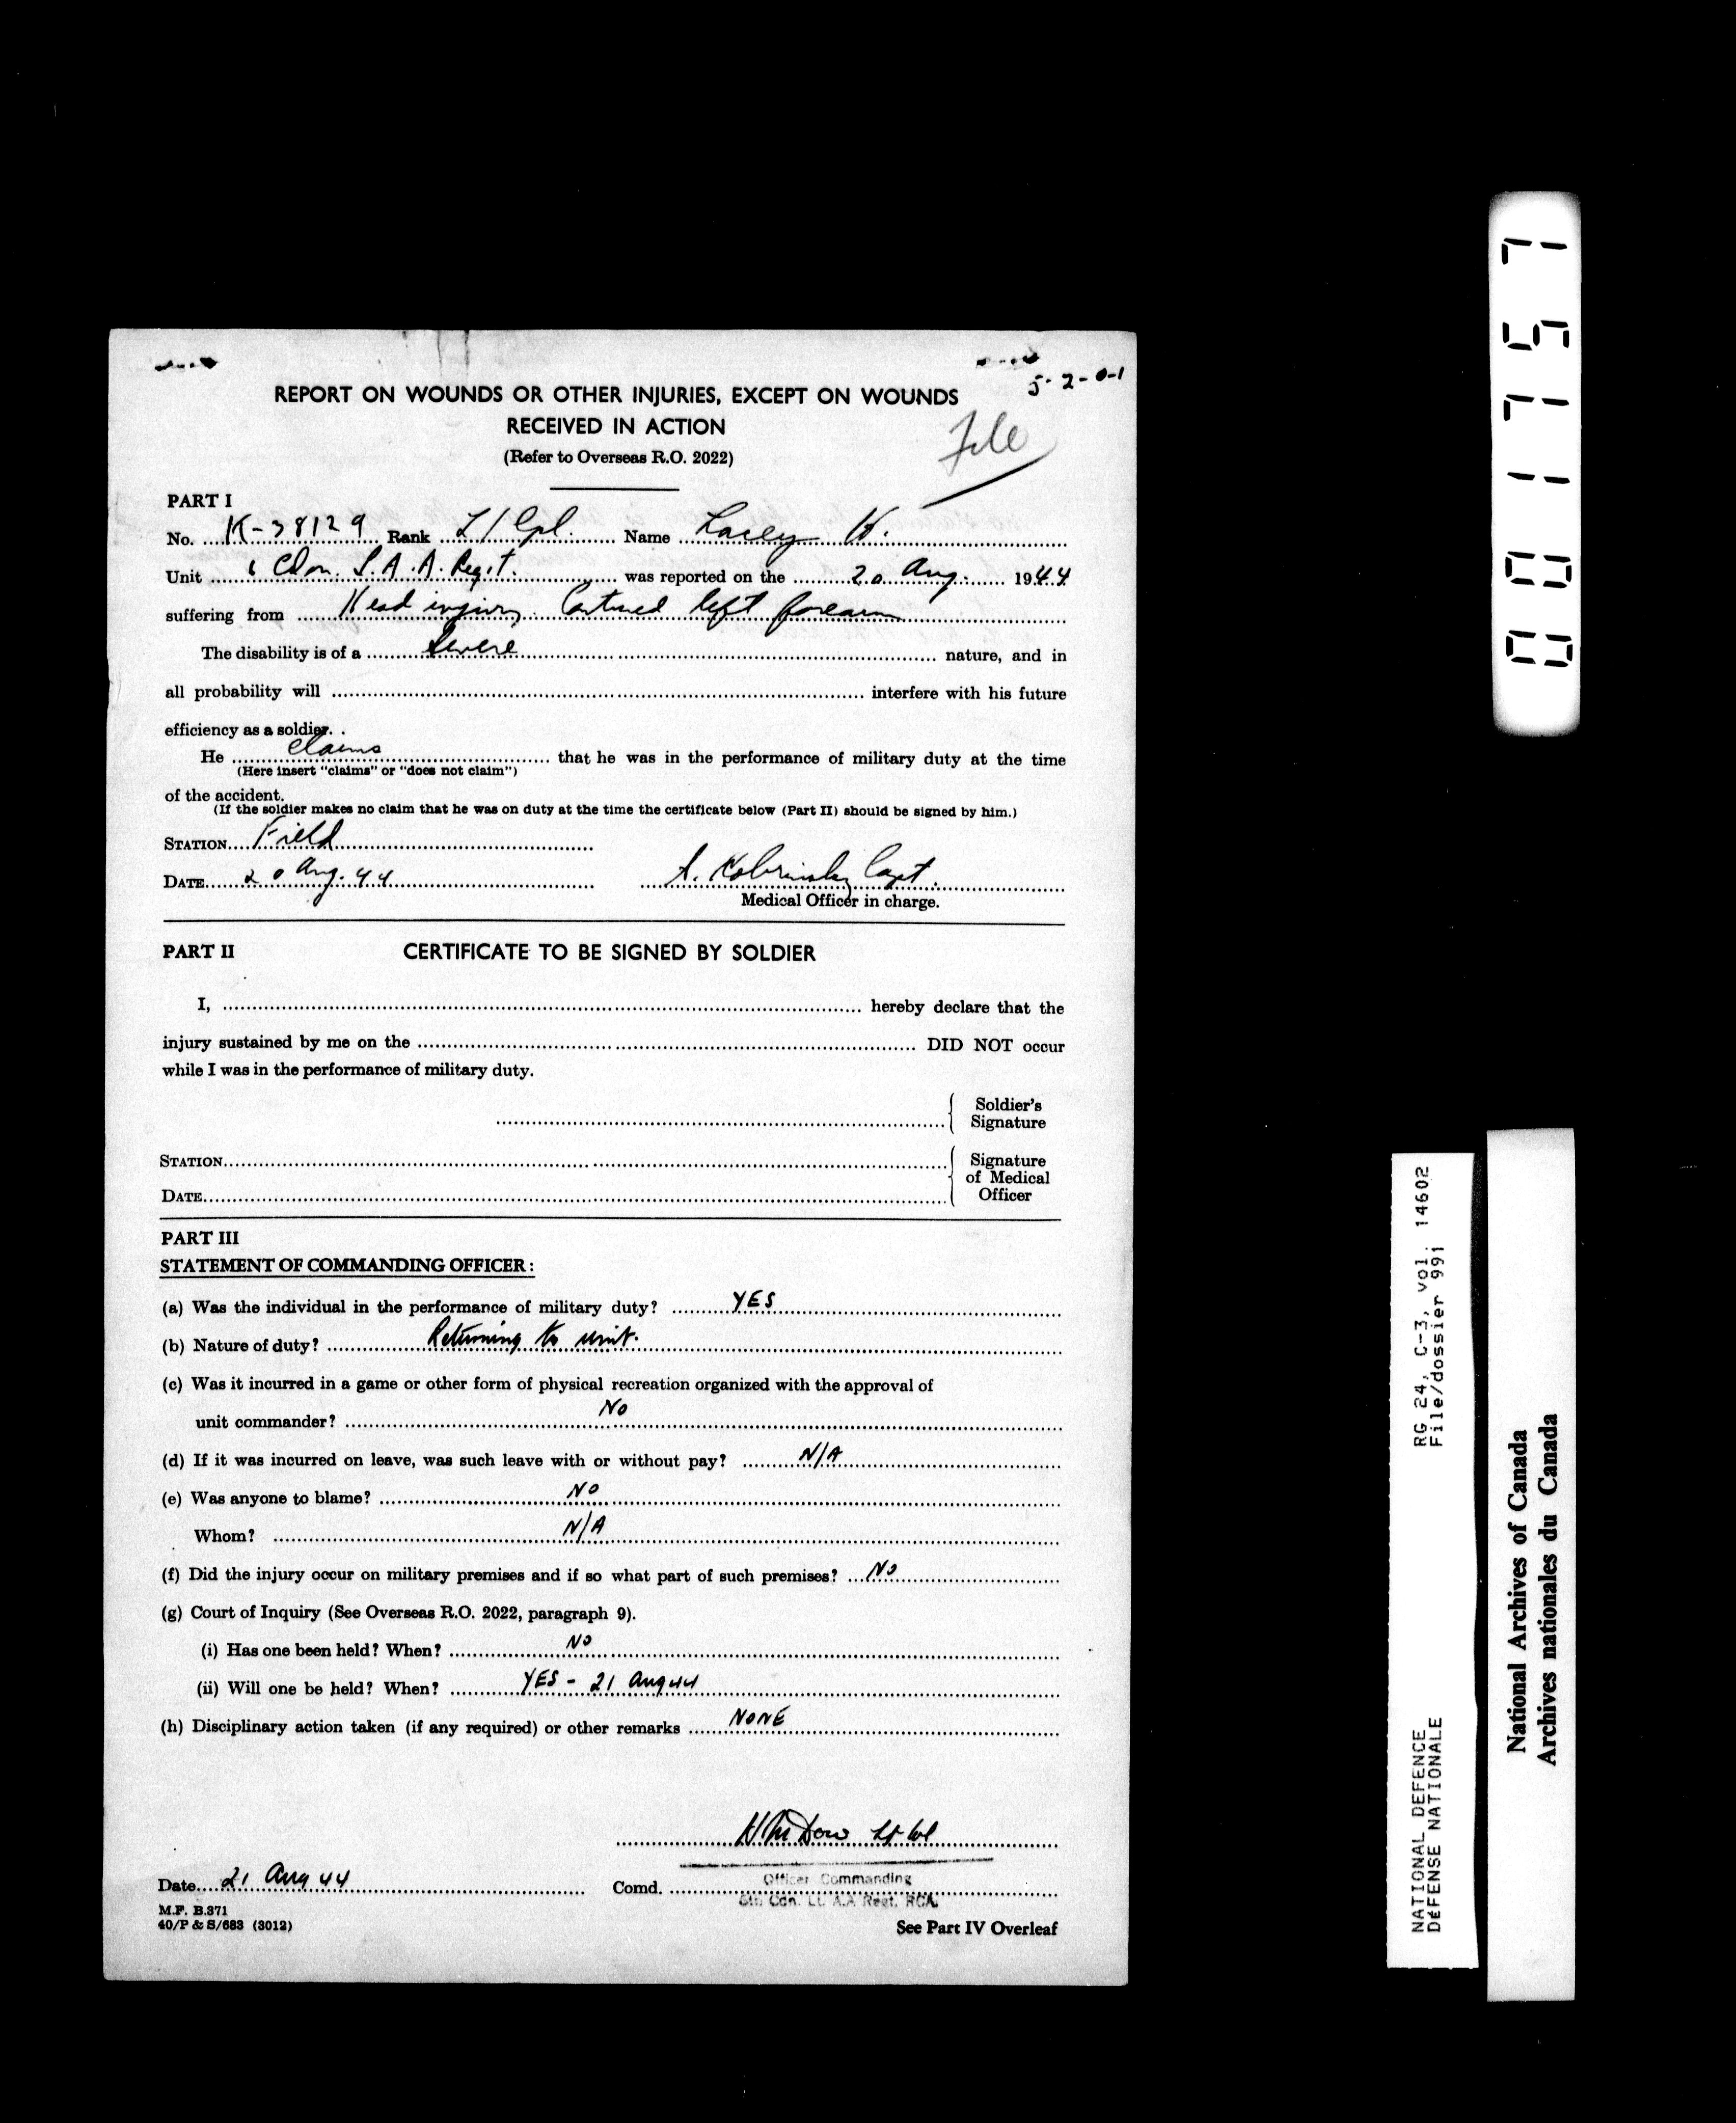 5-2-0-1
REPORT ON WOUNDS OR OTHER INJURIES, EXCEPT ON WOUNDS
RECEIVED IN ACTION
(Refer to Overseas R.O. 2022)
File
PART I
No. K-38129 Rank L/Cpl. Name Lacey H.
Unit 6 Cdn. L.A.A. Regt. was reported on the 20 Aug. 1944
suffering from Head injury. Contused left forearm
The disability is of a Severe nature, and in
all probability will interfere with his future
efficiency as a soldier. .
He claims that he was in the performance of military duty at the time
(Here insert "claims" or "does not claim")
of the accident.
(If the soldier makes no claim that he was on duty at the time the certificate below (Part II) should be signed by him.)
STATION Field
DATE 20 Aug. 44 Kobrinsky Capt.
Medical Officer in charge.
PART II CERTIFICATE TO BE SIGNED BY SOLDIER
I, hereby declare that the
injury sustained by me on the DID NOT occur
while I was in the performance of military duty.
Soldier's
Signature
STATION Signature
of Medical
DATE Officer
PART III
STATEMENT OF COMMANDING OFFICER:
(a) Was the individual in the performance of military duty? YES
(b) Nature of duty? Returning to unit.
(c) Was it incurred in a game or other form of physical recreation organized with the approval of
unit commander? NO
(d) If it was incurred on leave, was such leave with or without pay? N/A
(e) Was anyone to blame? NO
Whom? N/A
(f) Did the injury occur on military premises and if so what part of such premises? NO
(g) Court of Inquiry (See Overseas R.O. 2022, paragraph 9).
(i) Has one been held? When? NO
(ii) Will one be held? When? YES - 21 Aug 44
(h) Disciplinary action taken (if any required) or other remarks NONE
Dow Lt Col
Date 21 Aug 44 Comd. Officer Commanding
6th Cdn. Lt. A.A Regt. RCA.
M.F. B.371
40/P & S/683 (3012)
See Part IV Overleaf
001757
RG 24, C-3, vol. 14602
File/dossier 991
NATIONAL DEFENCE
DÉFENSE NATIONALE
National Archives of Canada
Archives nationales du Canada